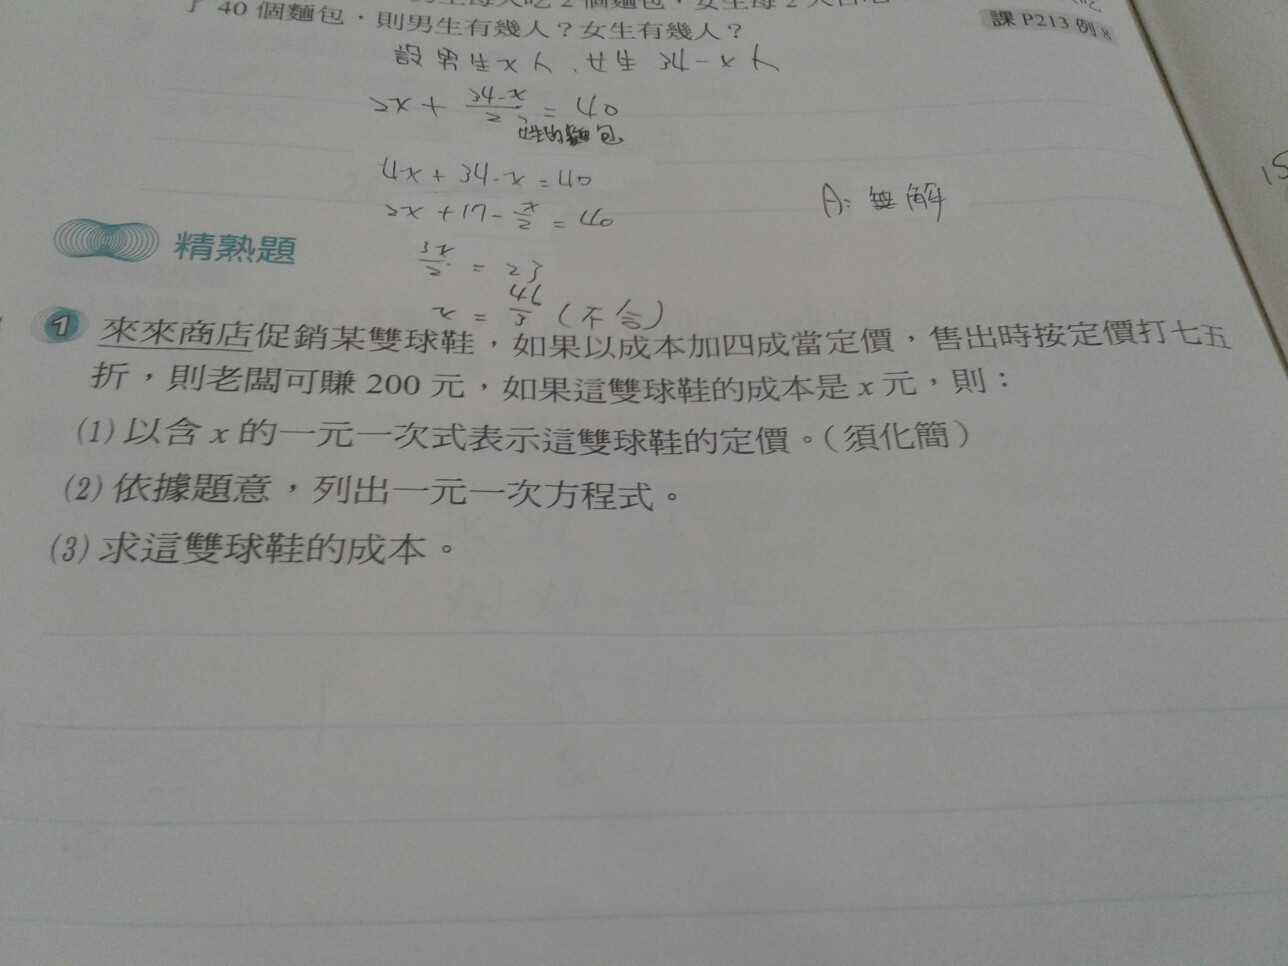 了 40 個麵包，則男生有幾人？女生有幾人？
課 P213 例 8
設男生 x 人，女生 34-x 人
2x + \frac{34-x}{2} = 40
4x + 34 - x = 40
2x + 17 - \frac{x}{2} = 40
A: 無解
\frac{3x}{2} = 23
x = \frac{46}{3} (不合)
精熟題
1 來來商店促銷某雙球鞋，如果以成本加四成當定價，售出時按定價打七五
折，則老闆可賺 200 元，如果這雙球鞋的成本是 x 元，則：
(1) 以含 x 的一元一次式表示這雙球鞋的定價。（須化簡）
(2) 依據題意，列出一元一次方程式。
(3) 求這雙球鞋的成本。